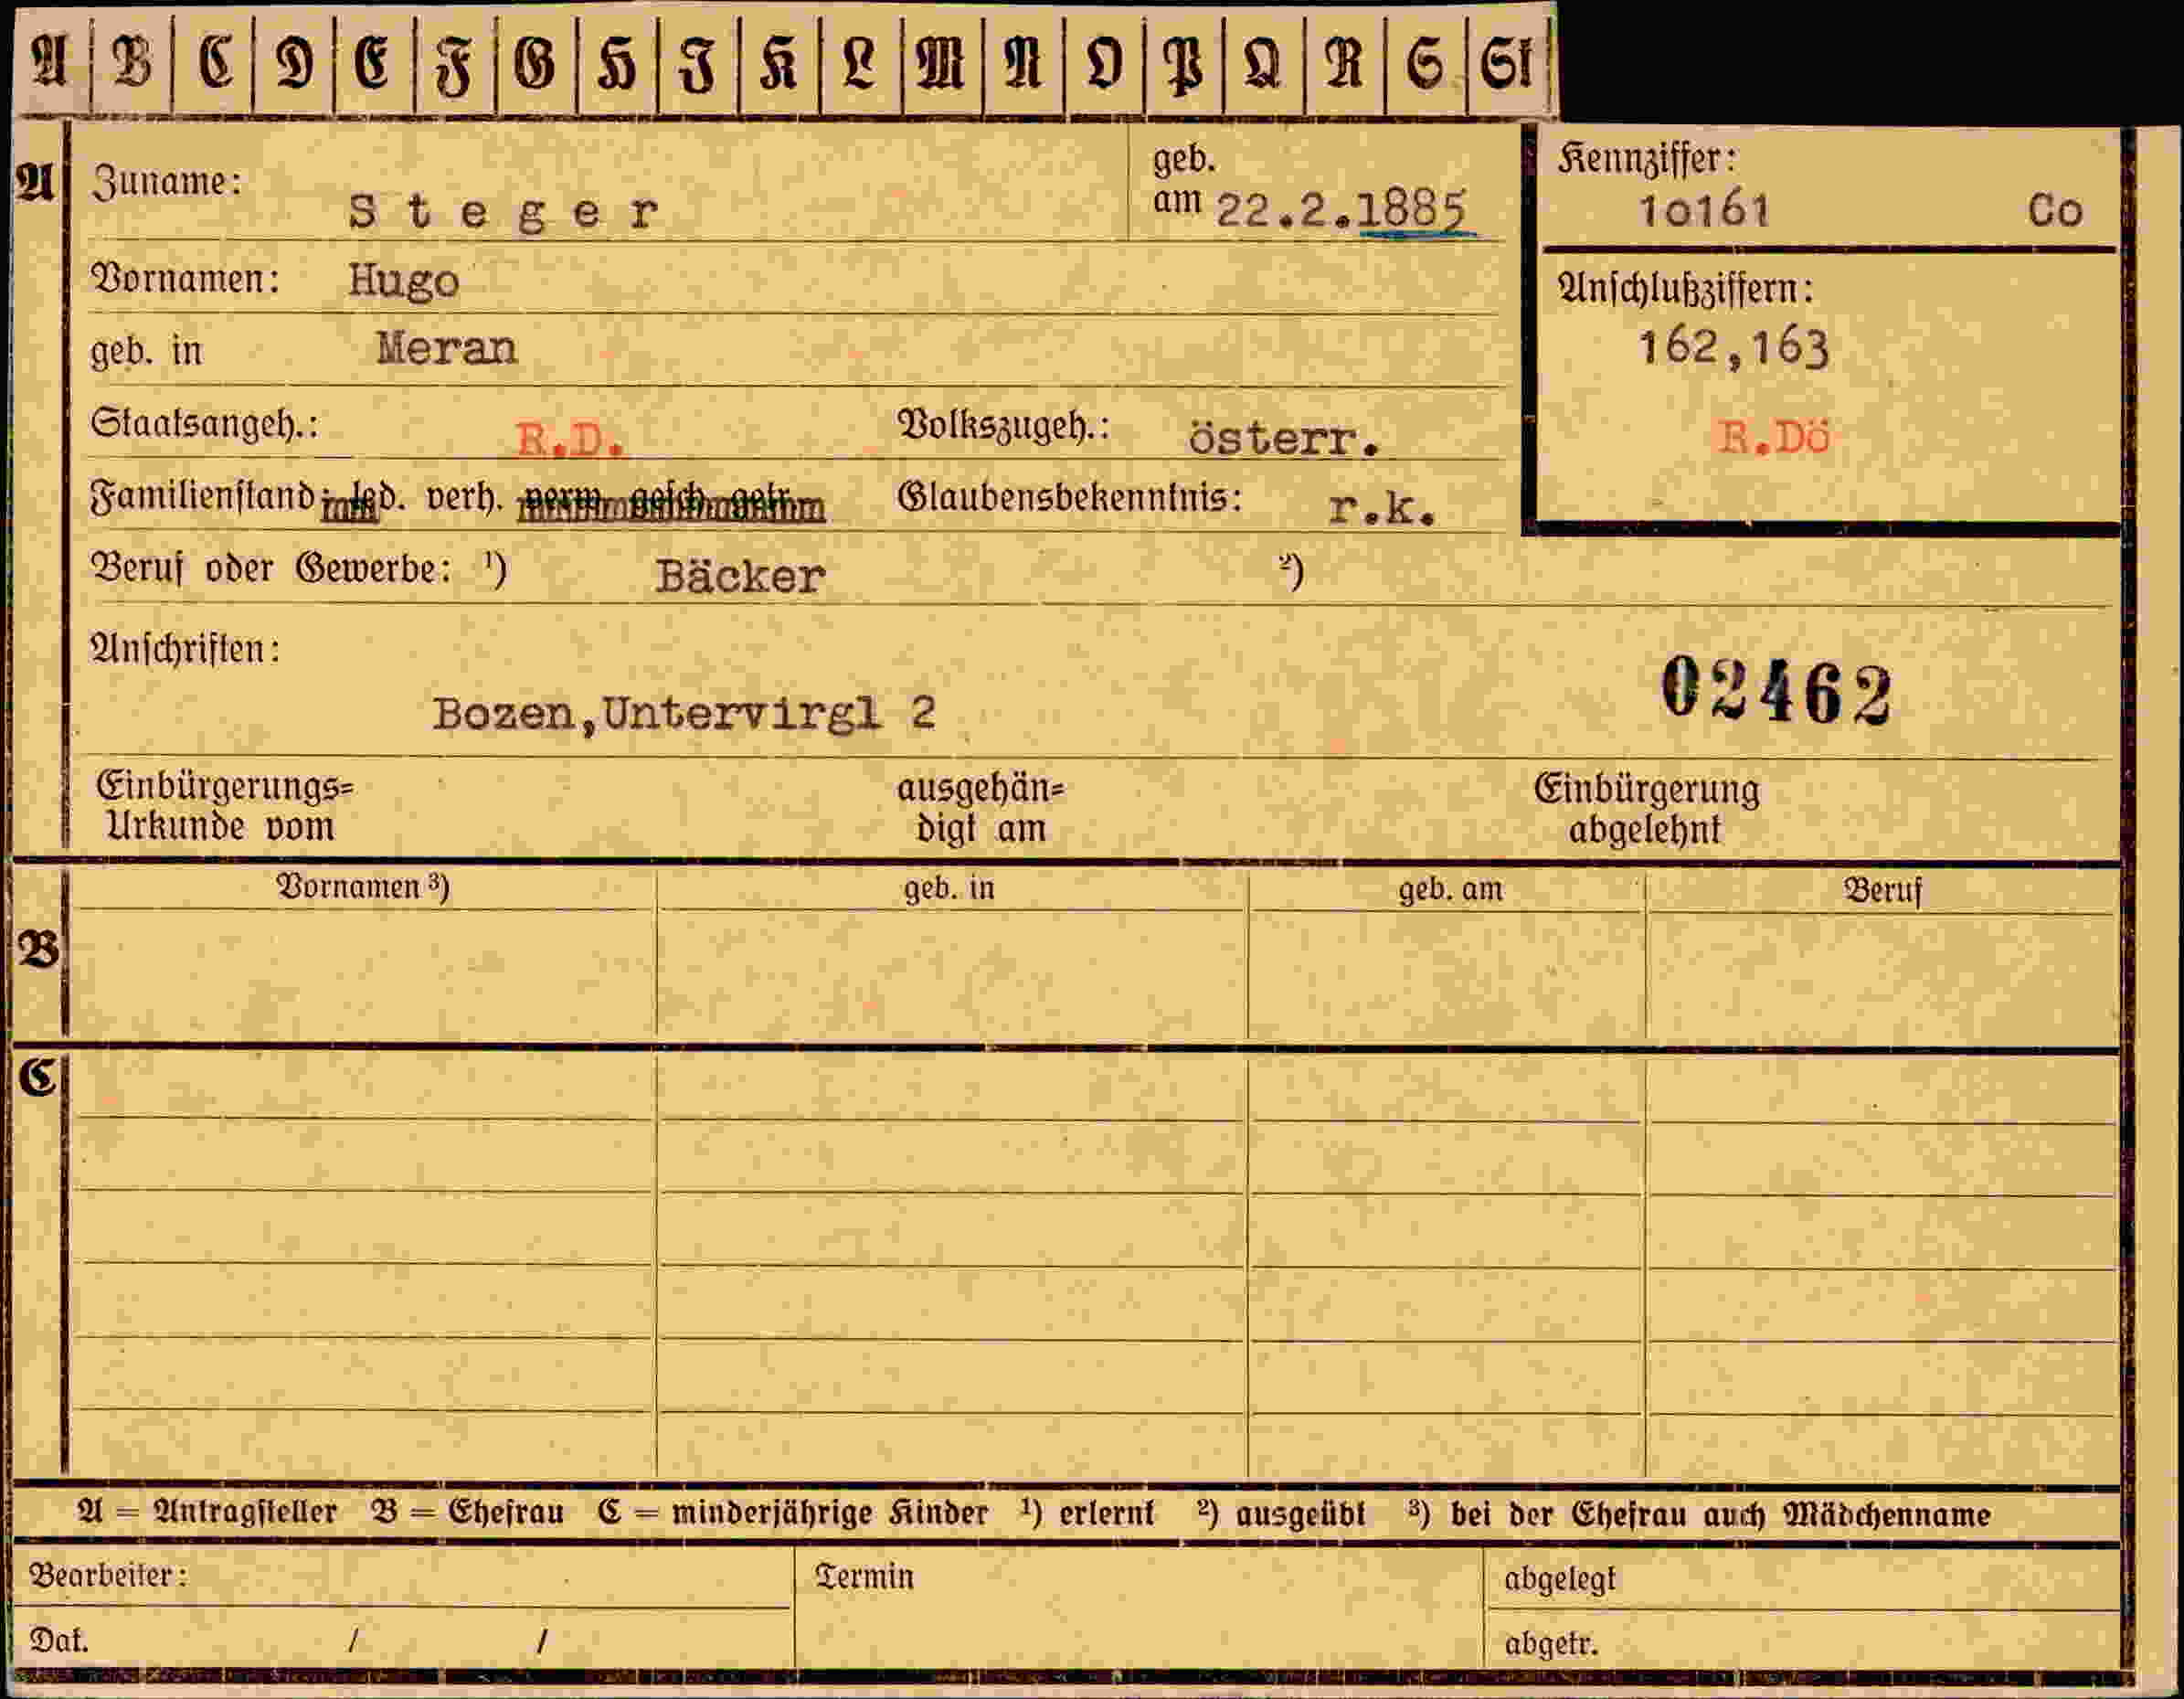 A B C D E F G H I K L M N O P Q R S St
A Zuname: Steger geb. am 22.2.1885 Kennziffer: 1o161 Co
Vornamen: Hugo
Anschlußziffern: 162,163
geb. in Meran
Staatsangeh.: R.D. Volkszugeh.: österr. R.Dö
Familienstand: led. verh. verw. gesch. getr. Glaubensbekenntnis: r.k.
Beruf oder Gewerbe: ¹) Bäcker ²)
Anschriften:
Bozen,Untervirgl 2 02462
Einbürgerungs=
Urkunde vom
ausgehän=
digt am
Einbürgerung
abgelehnt
Vornamen ³) geb. in geb. am Beruf
B
C
A = Antragsteller B = Ehefrau C = minderjährige Kinder ¹) erlernt ²) ausgeübt ³) bei der Ehefrau auch Mädchenname
Bearbeiter: Termin abgelegt
Dat. / / abgetr.